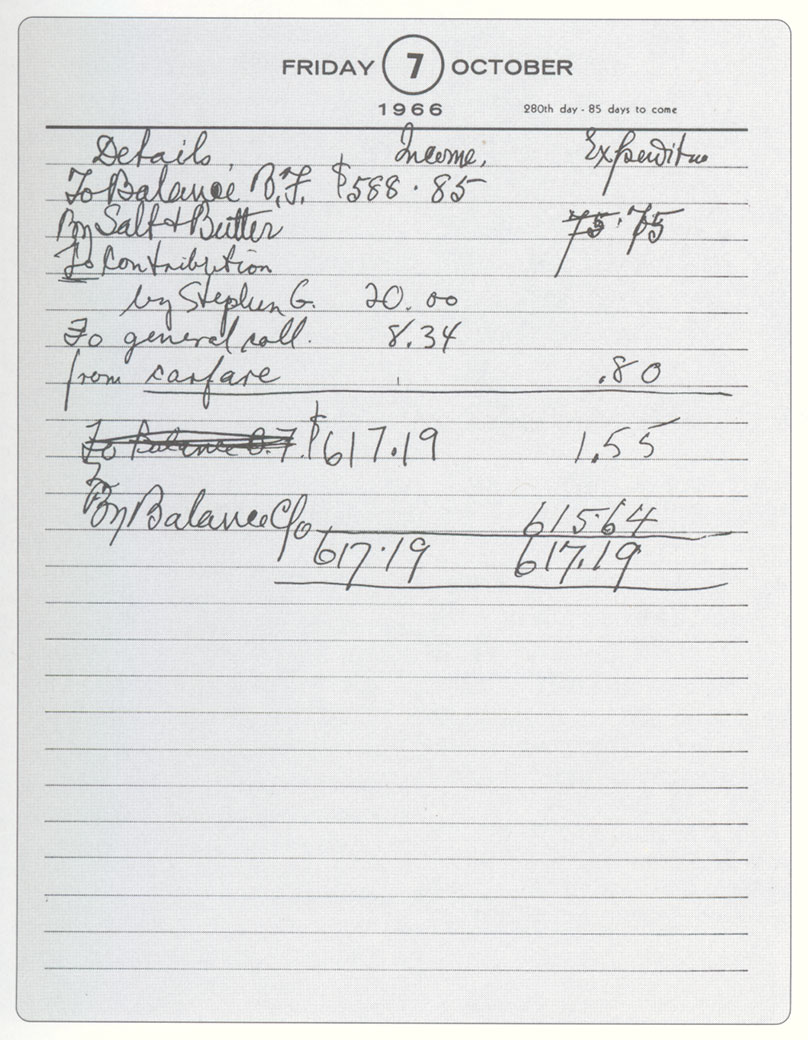 FRIDAY 7 OCTOBER
1966 280th day - 85 days to come
Details, Income, Expenditure
To Balance B.F. $588.85
By Salt & Butter .75
To Contribution
by Stephen G. 20.00
To general coll. 8.34
from carfare .80
To Balance B.F. $617.19 1.55
By Balance C/o 615.64
617.19 617.19